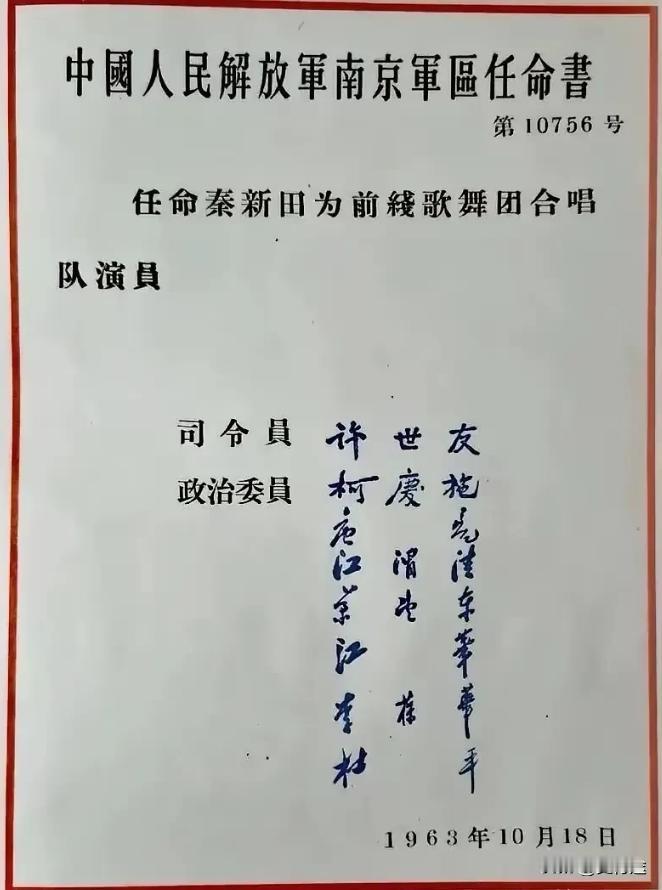 中國人民解放軍南京軍區任命書
第10756号
任命秦新田为前綫歌舞团合唱
队演員
司令員 许世友
政治委員 柯慶施
唐亮
江渭清
萧望东
江華
李葆華
杜平
1963年10月18日